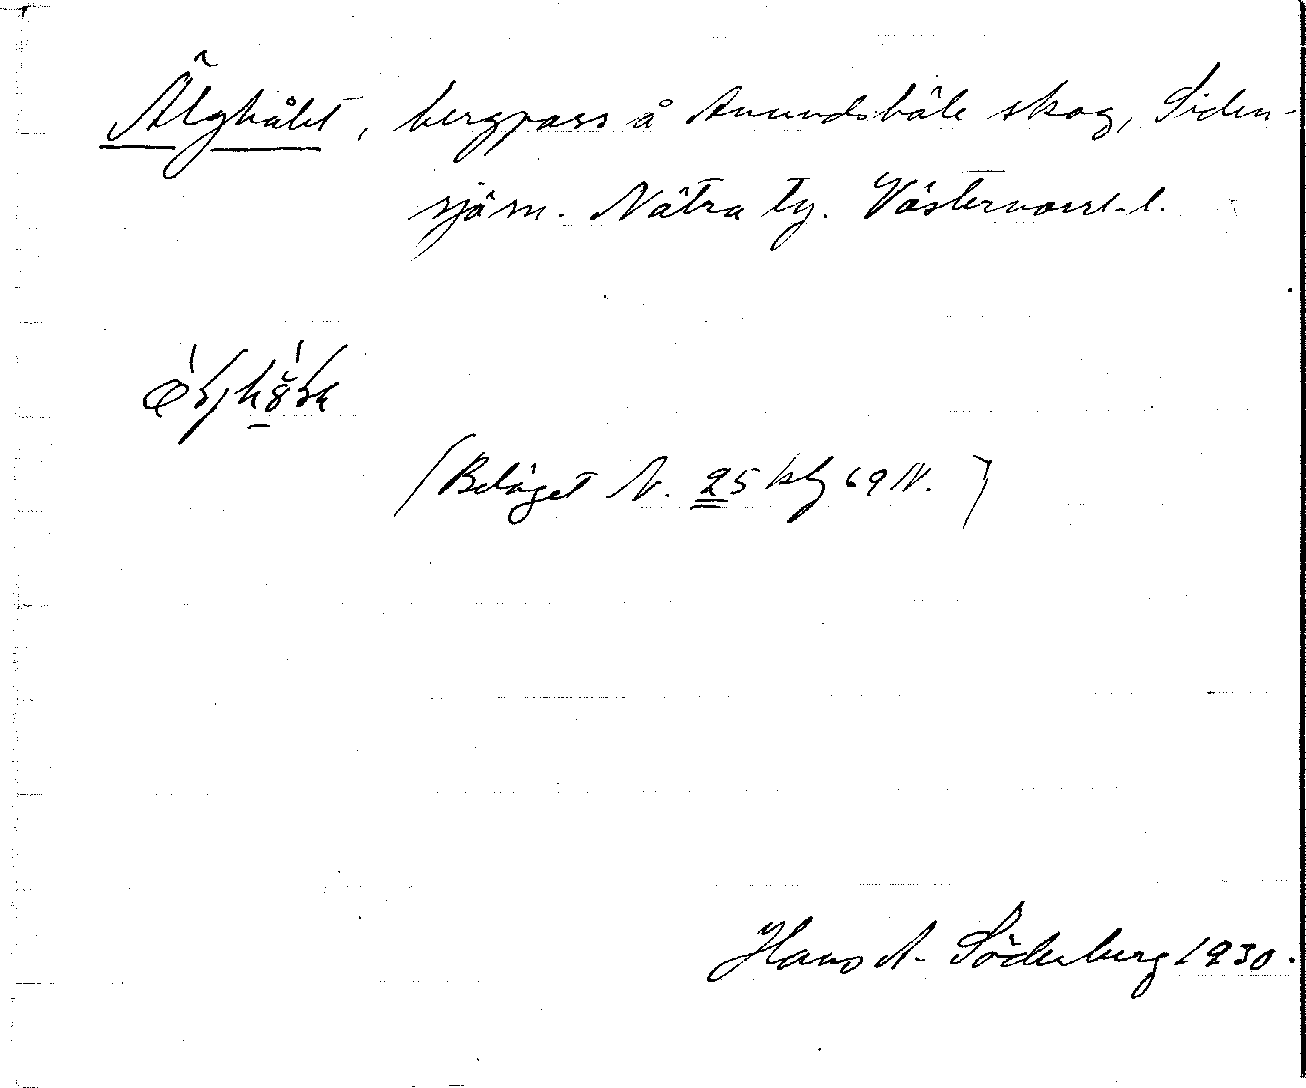 Älghålet, bergpass å Anundsböle skog, Siden-
sjö sn. Nätra tg. Västernorrl. l.
(Beläget N. 25 kbg 69 N.)
Hans A. Söderberg 1930.